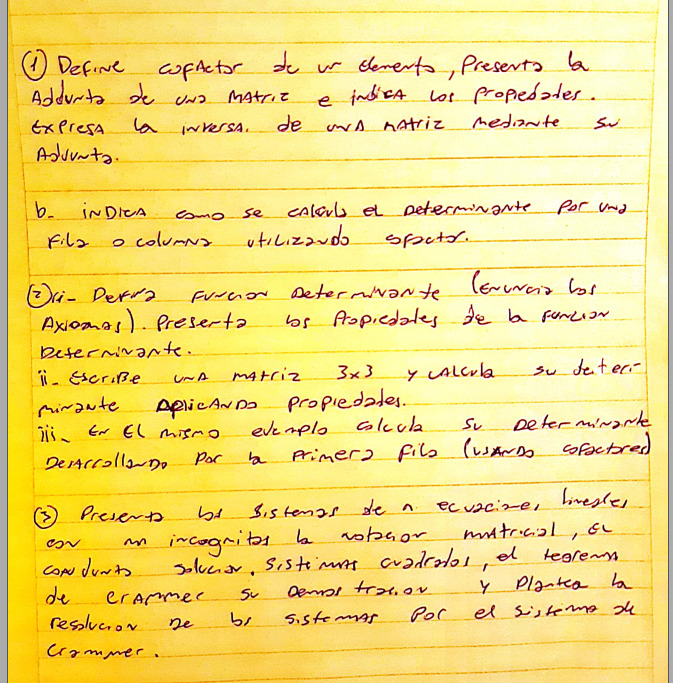 ① Define cofactor de un elemento, Presenta la
Adjunta de una Matriz e indica los Propiedades.
Expresa la inversa. de una Matriz mediante su
Adjunta.
b- indica como se calcula el Determinante Por una
Fila o columna utilizando cofactor.
② i- Defina Funcion Determinante (Enuncia los
Axiomas). Presenta los Propiedades de la Funcion
Determinante.
ii- Escribe una matriz 3x3 y calcula su deter-
minante Aplicando Propiedades.
iii- En El mismo ejemplo calcula su Determinante
Desarrollando Por la Primera Fila (usando cofactores)
③ Presenta los Sistemas de n ecuaciones lineales
con m incognitas la notacion matricial, el
conjunto solucion. Sistemas cuadrados, el teorema
de crammer su Demostracion y Plantea la
resolucion De los sistemas Por el sistema de
Crammer.